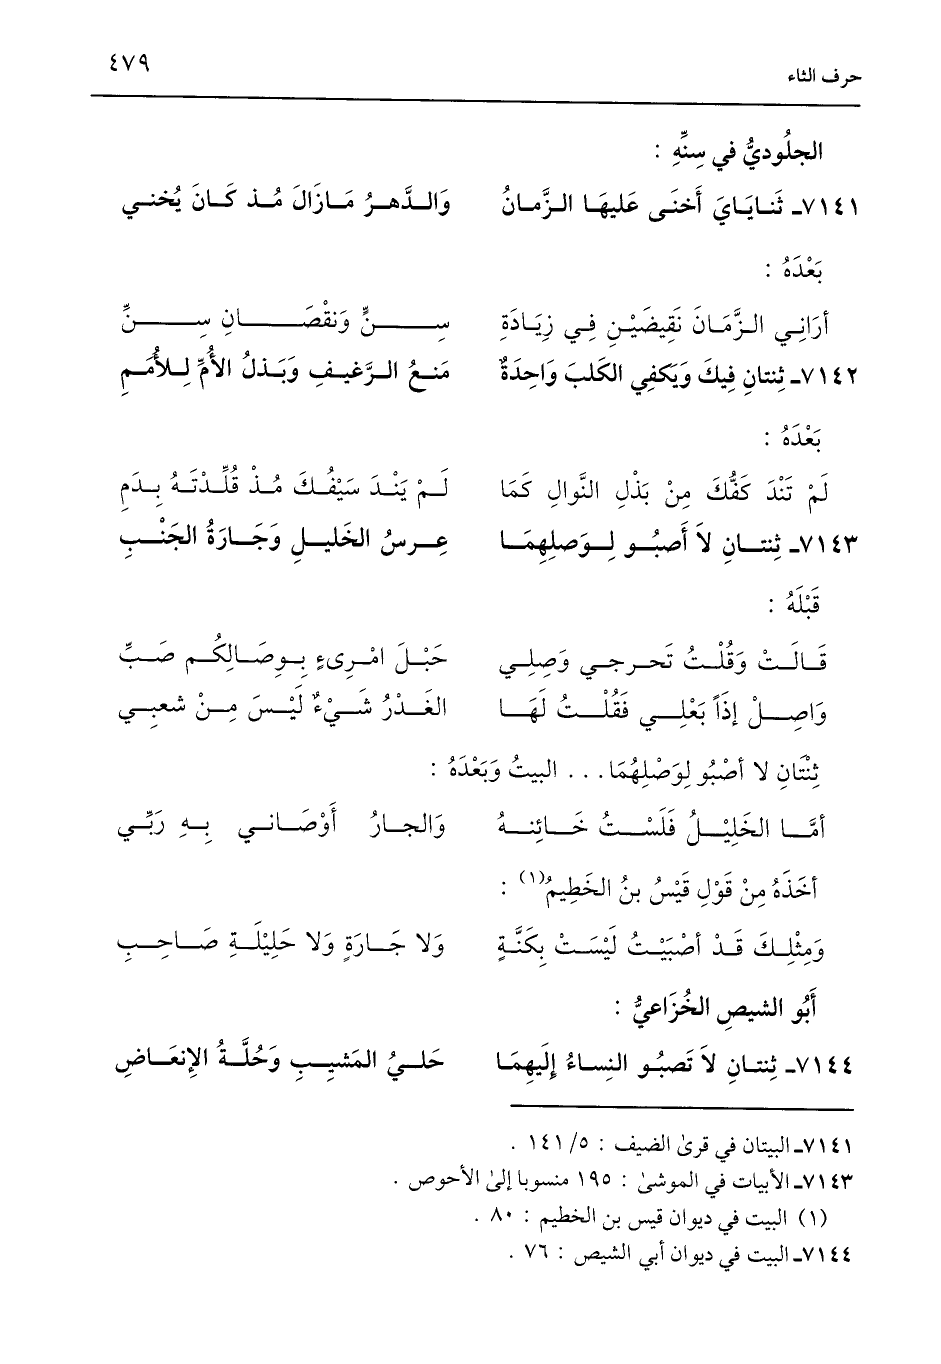 حرف الثاء ٤٧٩
الجلُوديُّ في سِنِّهِ :
٧١٤١ـ ثَنايَايَ أَخنَى عَليهَا الزَّمانُ وَالدَّهرُ مَازَالَ مُذ كَانَ يُخني
بَعْدَهُ :
أرَانِي الزَّمَانَ نَقِيضَيْنِ فِي زِيَادَةِ سِنٍّ وَنقْصَانِ سِنِّ
٧١٤٢ـ ثِنتانِ فِيكَ وَيَكفِي الكَلبَ وَاحِدَةٌ مَنعُ الرَّغيفِ وَبَذلُ الأُمِّ لِلأُمَمِ
بَعْدَهُ :
لَمْ تَنْدَ كَفُّكَ مِنْ بَذْلِ النَّوالِ كَمَا لَمْ يَنْدَ سَيْفُكَ مُذْ قُلِّدْتَهُ بِدَمِ
٧١٤٣ـ ثِنتانِ لاَ أَصبُو لِوَصلِهِمَا عِرسُ الخَليلِ وَجَارَةُ الجَنْبِ
قَبْلَهُ :
قَالَتْ وَقُلْتُ تَحرجي وَصِلِي حَبْلَ امْرِىءٍ بِوصَالِكُم صَبِّ
وَاصِلْ إِذَاً بَعْلِي فَقُلْتُ لَهَا الغَدْرُ شَيْءٌ لَيْسَ مِنْ شعبي
ثِنْتَانِ لا أصْبُو لِوَصْلِهُمَا . . . البيتُ وَبَعْدَهُ :
أمَّا الخَلِيْلُ فَلَسْتُ خَائِنهُ وَالجارُ أَوْصَاني بِهِ رَبِّي
أخَذَهُ مِنْ قَوْلِ قَيْسُ بنُ الخَطِيمُ(١) :
وَمِثْلِكَ قَدْ أصْبَيْتُ لَيْسَتْ بِكَنَّةٍ وَلا جَارَةٍ وَلا حَلِيْلَةِ صَاحِبِ
أَبُو الشيصِ الخُزَاعيُّ :
٧١٤٤ـ ثِنتانِ لاَ تَصبُو النساءُ إِلَيهِمَا حَليُ المَشيِبِ وَحُلَّةُ الإِنعَاضِ
٧١٤١ـ البيتان في قرىٰ الضيف : ٥/ ١٤١ .
٧١٤٣ـ الأبيات في الموشىٰ : ١٩٥ منسوبا إلىٰ الأحوص .
(١) البيت في ديوان قيس بن الخطيم : ٨٠ .
٧١٤٤ـ البيت في ديوان أبي الشيص : ٧٦ .